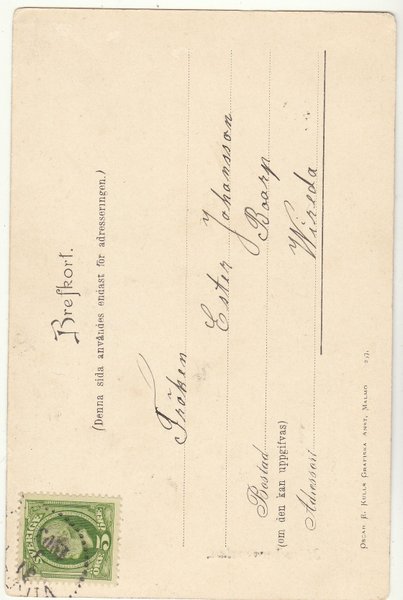 Brefkort.
(Denna sida användes endast för adresseringen.)
Fröken
Ester Johansson
Bostad Boarp
(om den kan uppgifvas)
Adressort Wireda
OSCAR B. KULLS GRAFISKA ANST., MALMÖ 217.
SVERIGE
5